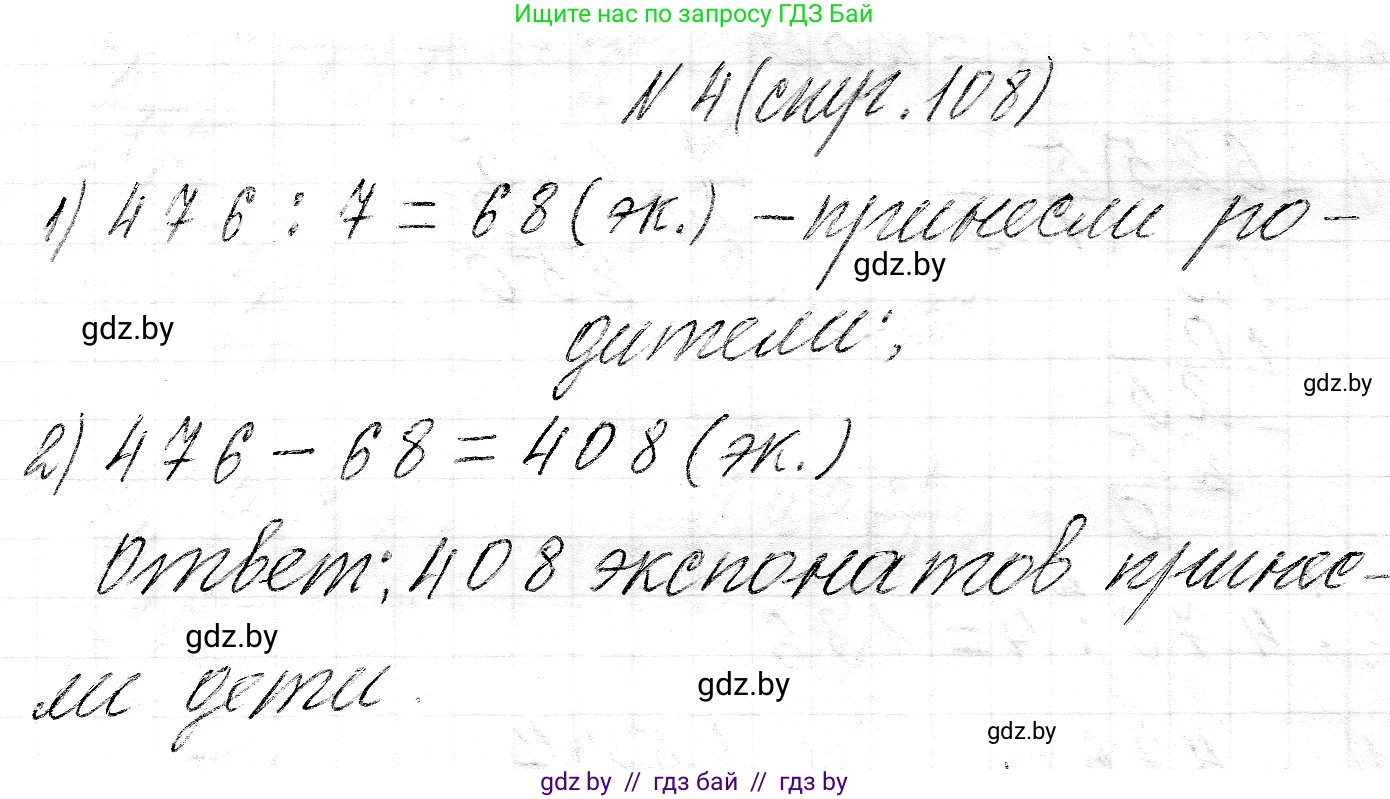 Ищите нас по запросу ГДЗ Бай
N 4 (стр. 108)
1) 476 : 7 = 68 (эк.) - принесли ро-
gdz.by
gdz.by
дители;
gdz.by
2) 476 - 68 = 408 (эк.)
Ответ: 408 экспонатов принес-
gdz.by
ли дети.
gdz.by
gdz.by
gdz.by // гдз бай // гдз by